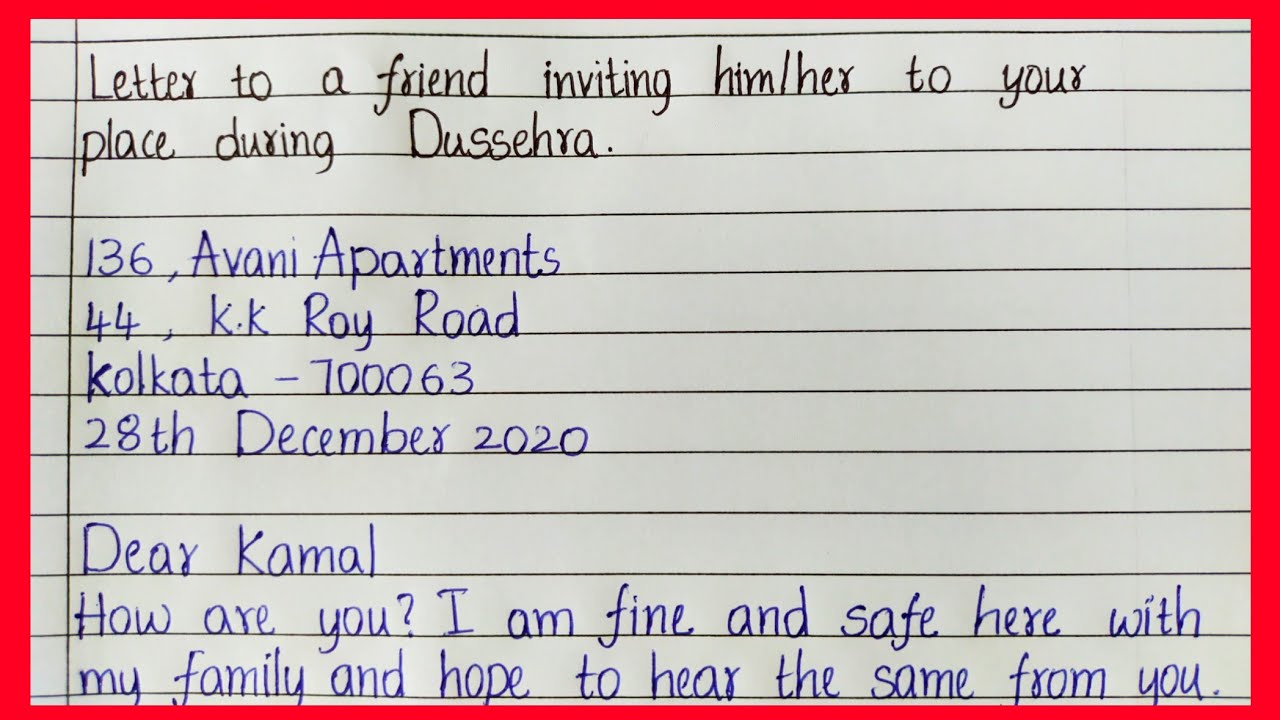 Letter to a friend inviting him/her to your
place during Dussehra.
136, Avani Apartments
44, K.K Roy Road
Kolkata - 700063
28th December 2020
Dear Kamal
How are you? I am fine and safe here with
my family and hope to hear the same from you.